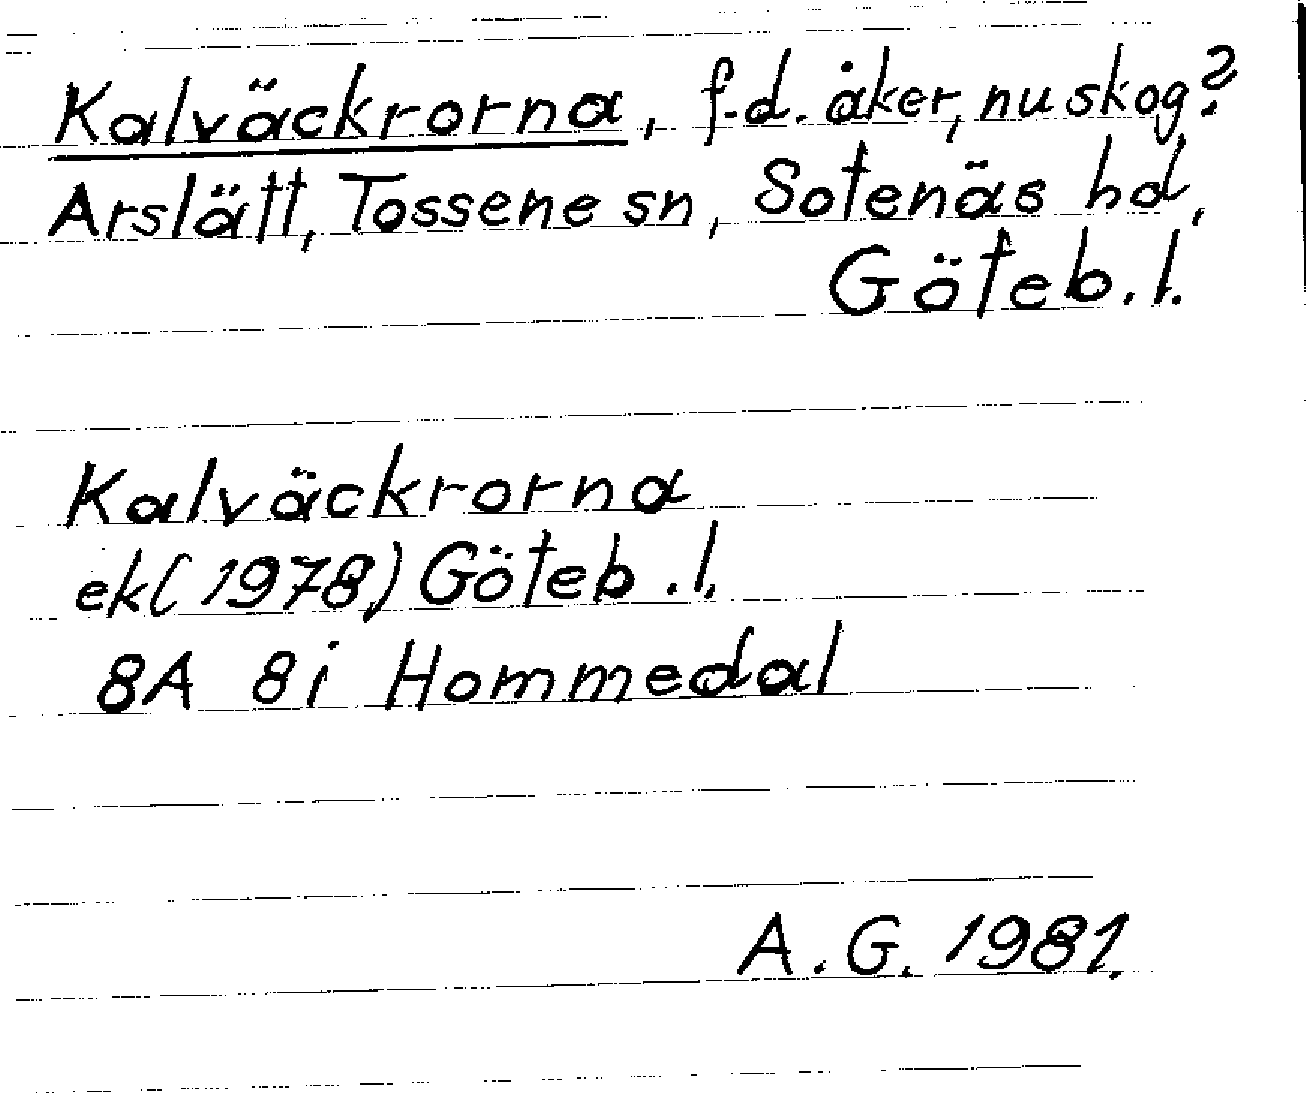 Kalväckrorna, f.d. åker, nu skog?
Arslätt, Tossene sn, Sotenäs hd,
Göteb. l.
Kalväckrorna
ek (1978) Göteb. l.
8A 8i Hommedal
A. G. 1981.